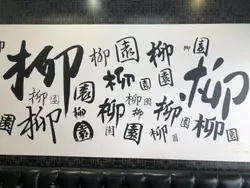 柳園
柳園
柳園
柳園
柳園
柳園
柳園
柳園
柳園
柳園
柳園
柳園